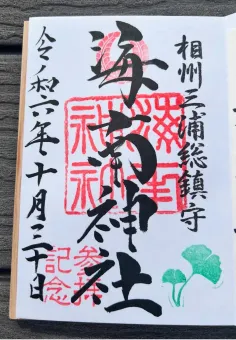 相州三浦総鎮守
海南神社
海南神社
参拝記念
令和六年十月三十日